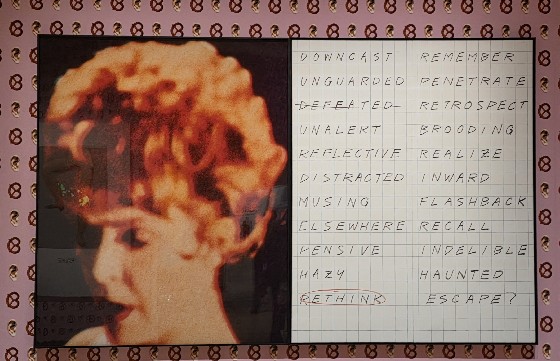 DOWNCAST REMEMBER
UNGUARDED PENETRATE
DEFEATED RETROSPECT
UNALERT BROODING
REFLECTIVE REALIZE
DISTRACTED INWARD
MUSING FLASHBACK
ELSEWHERE RECALL
PENSIVE INDELIBLE
HAZY HAUNTED
RETHINK ESCAPE?